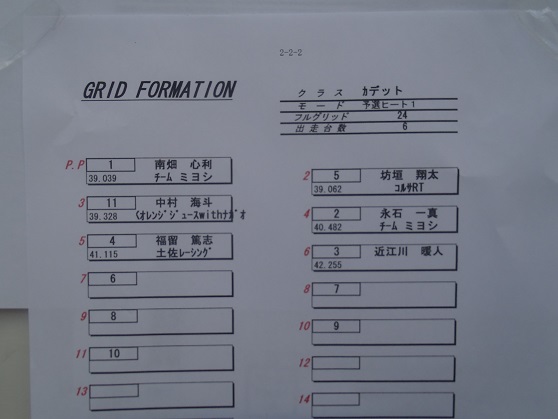 2-2-2
GRID FORMATION
クラス カデット
モード 予選ヒート1
フルグリッド 24
出走台数 6
P.P 1 南畑 心利
39.039 チーム ミヨシ
2 5 坊垣 翔太
39.062 コルサRT
3 11 中村 海斗
39.328 くオレンジジュースwithナガオ
4 2 永石 一真
40.482 チーム ミヨシ
5 4 福留 篤志
41.115 土佐レーシング
6 3 近江川 暖人
42.255
7 6
8 7
9 8
10 9
11 10
12
13
14